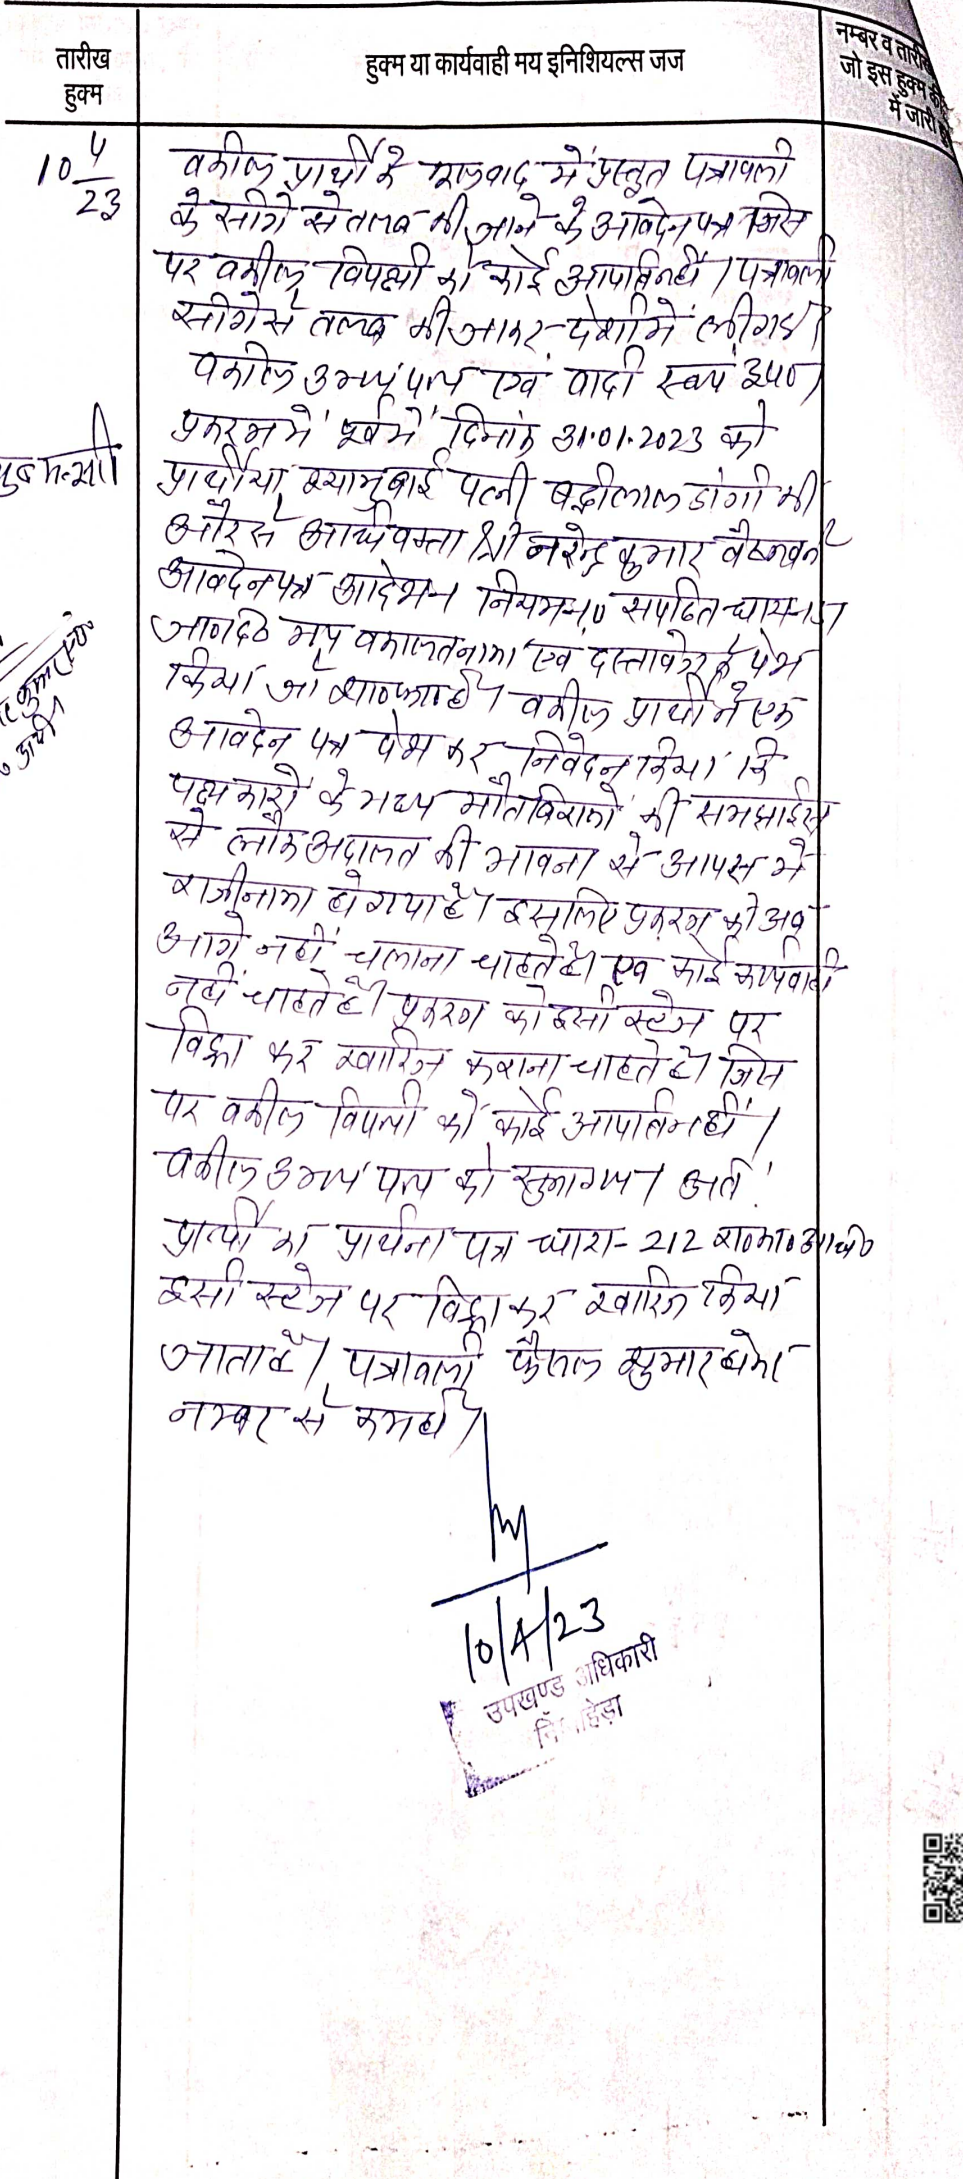 तारीख
हुक्म
हुक्म या कार्यवाही मय इनिशियल्स जज
नम्बर व तारीख
जो इस हुक्म की
में जारी हु
10 4/23
वकील प्रार्थी के मूलवाद में प्रस्तुत पत्रावली
के सीगे से तलब की जाने के आवदेन पत्र जिस
पर वकील विपक्षी को कोई आपति नहीं। पत्रावली
सीगे से तलब की जाकर पेशी में ली गई।
वकील उभय पक्ष एवं वादी स्वयं उप०।
प्रकरण में पूर्व में दिनांक 31.01.2023 को
प्रार्थीया श्यामुबाई पत्नी बद्रीलाल डांगी की
और से अधिवक्ता श्री नरेन्द्र कुमार वैष्णव ने
आवदेन पत्र आदेश-1 नियम-10 सपठित धारा-
जा०दी० मय वकालतनामा एवं दस्तावेज के पेश
किया जो शा०फा० है। वकील प्रार्थी ने एक
आवदेन पत्र पेश कर निवेदन किया कि
पक्षकारो के मध्य मौतबिरानो की समझाईस
से लोक अदालत की भावना से आपस मे
राजीनामा हो गया है। इसलिए प्रकरण को अब
आगे नहीं चलाना चाहते है। एवं कोई कार्यवाही
नहीं चाहते है। प्रकरण को इसी स्टेज पर
विड्रा कर खारिज कराना चाहते है। जिस
पर वकील विपक्षी को कोई आपति नहीं।
वकील उभय पक्ष को सुना गया। अतः
प्रार्थी का प्रार्थना पत्र धारा-212 रा०का०अधि०
इसी स्टेज पर विड्रा कर खारिज किया
जाता है। पत्रावली फैसल शुमार होकर
नम्बर से कम हो।
10/4/23
उपखण्ड अधिकारी